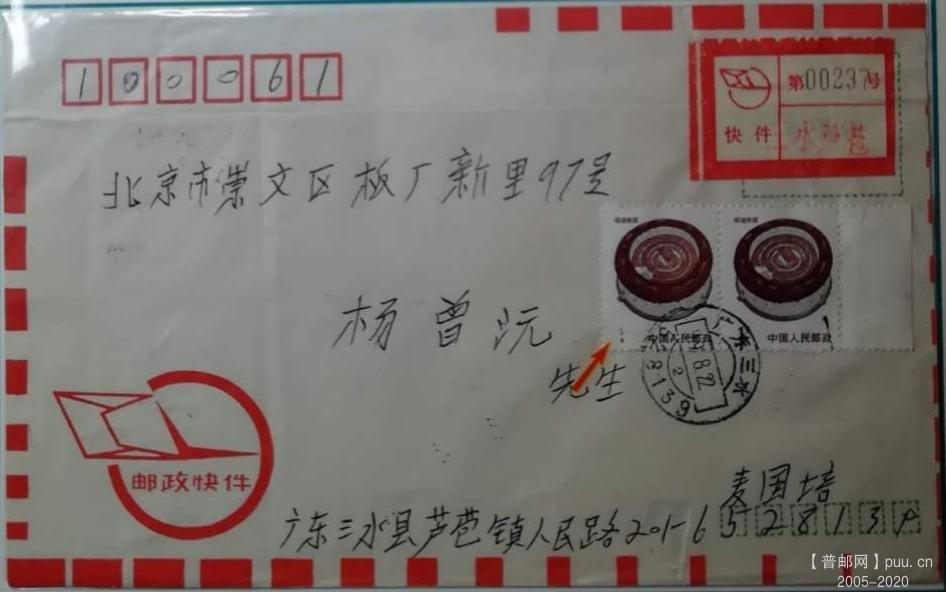 100061
第00237号
快件
三水芦苞
北京市崇文区板厂新里97号
福建民居 福建民居
中国人民邮政 中国人民邮政
杨曾沅
先生
广东三水
邮政快件
麦国培
广东三水县芦苞镇人民路201-6 528139
【普邮网】puu.cn
2005-2020